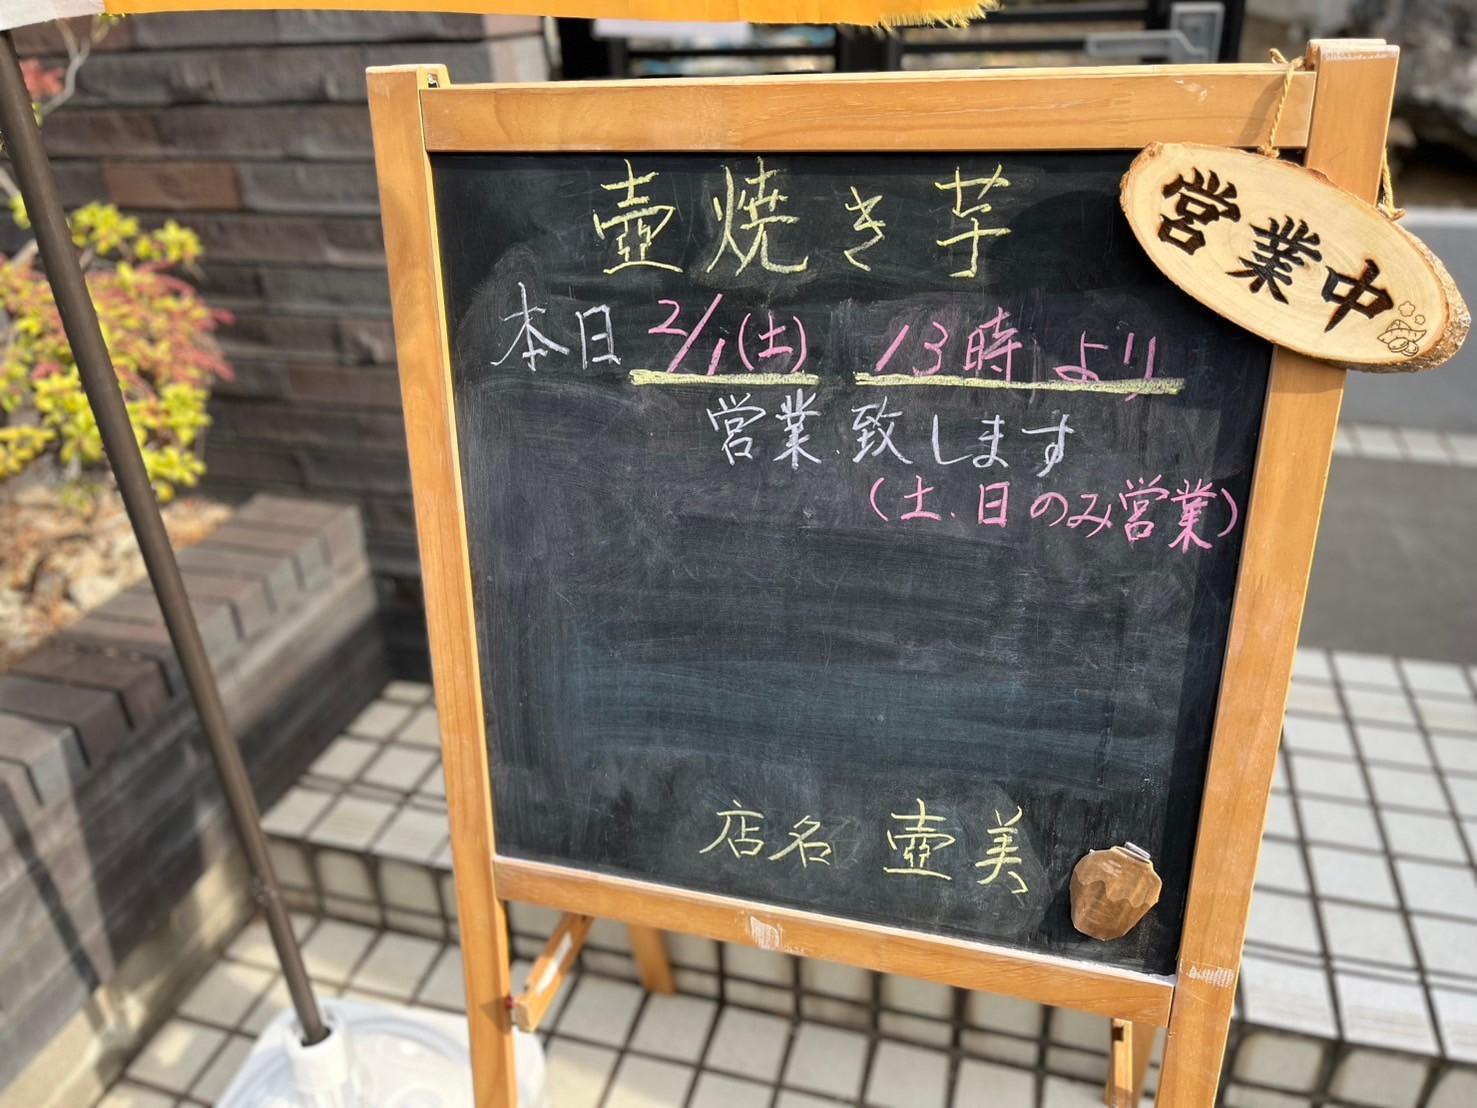 壺焼き芋
営業中
本日 2/1(土) 13時より
営業致します
(土、日のみ営業)
店名 壺美